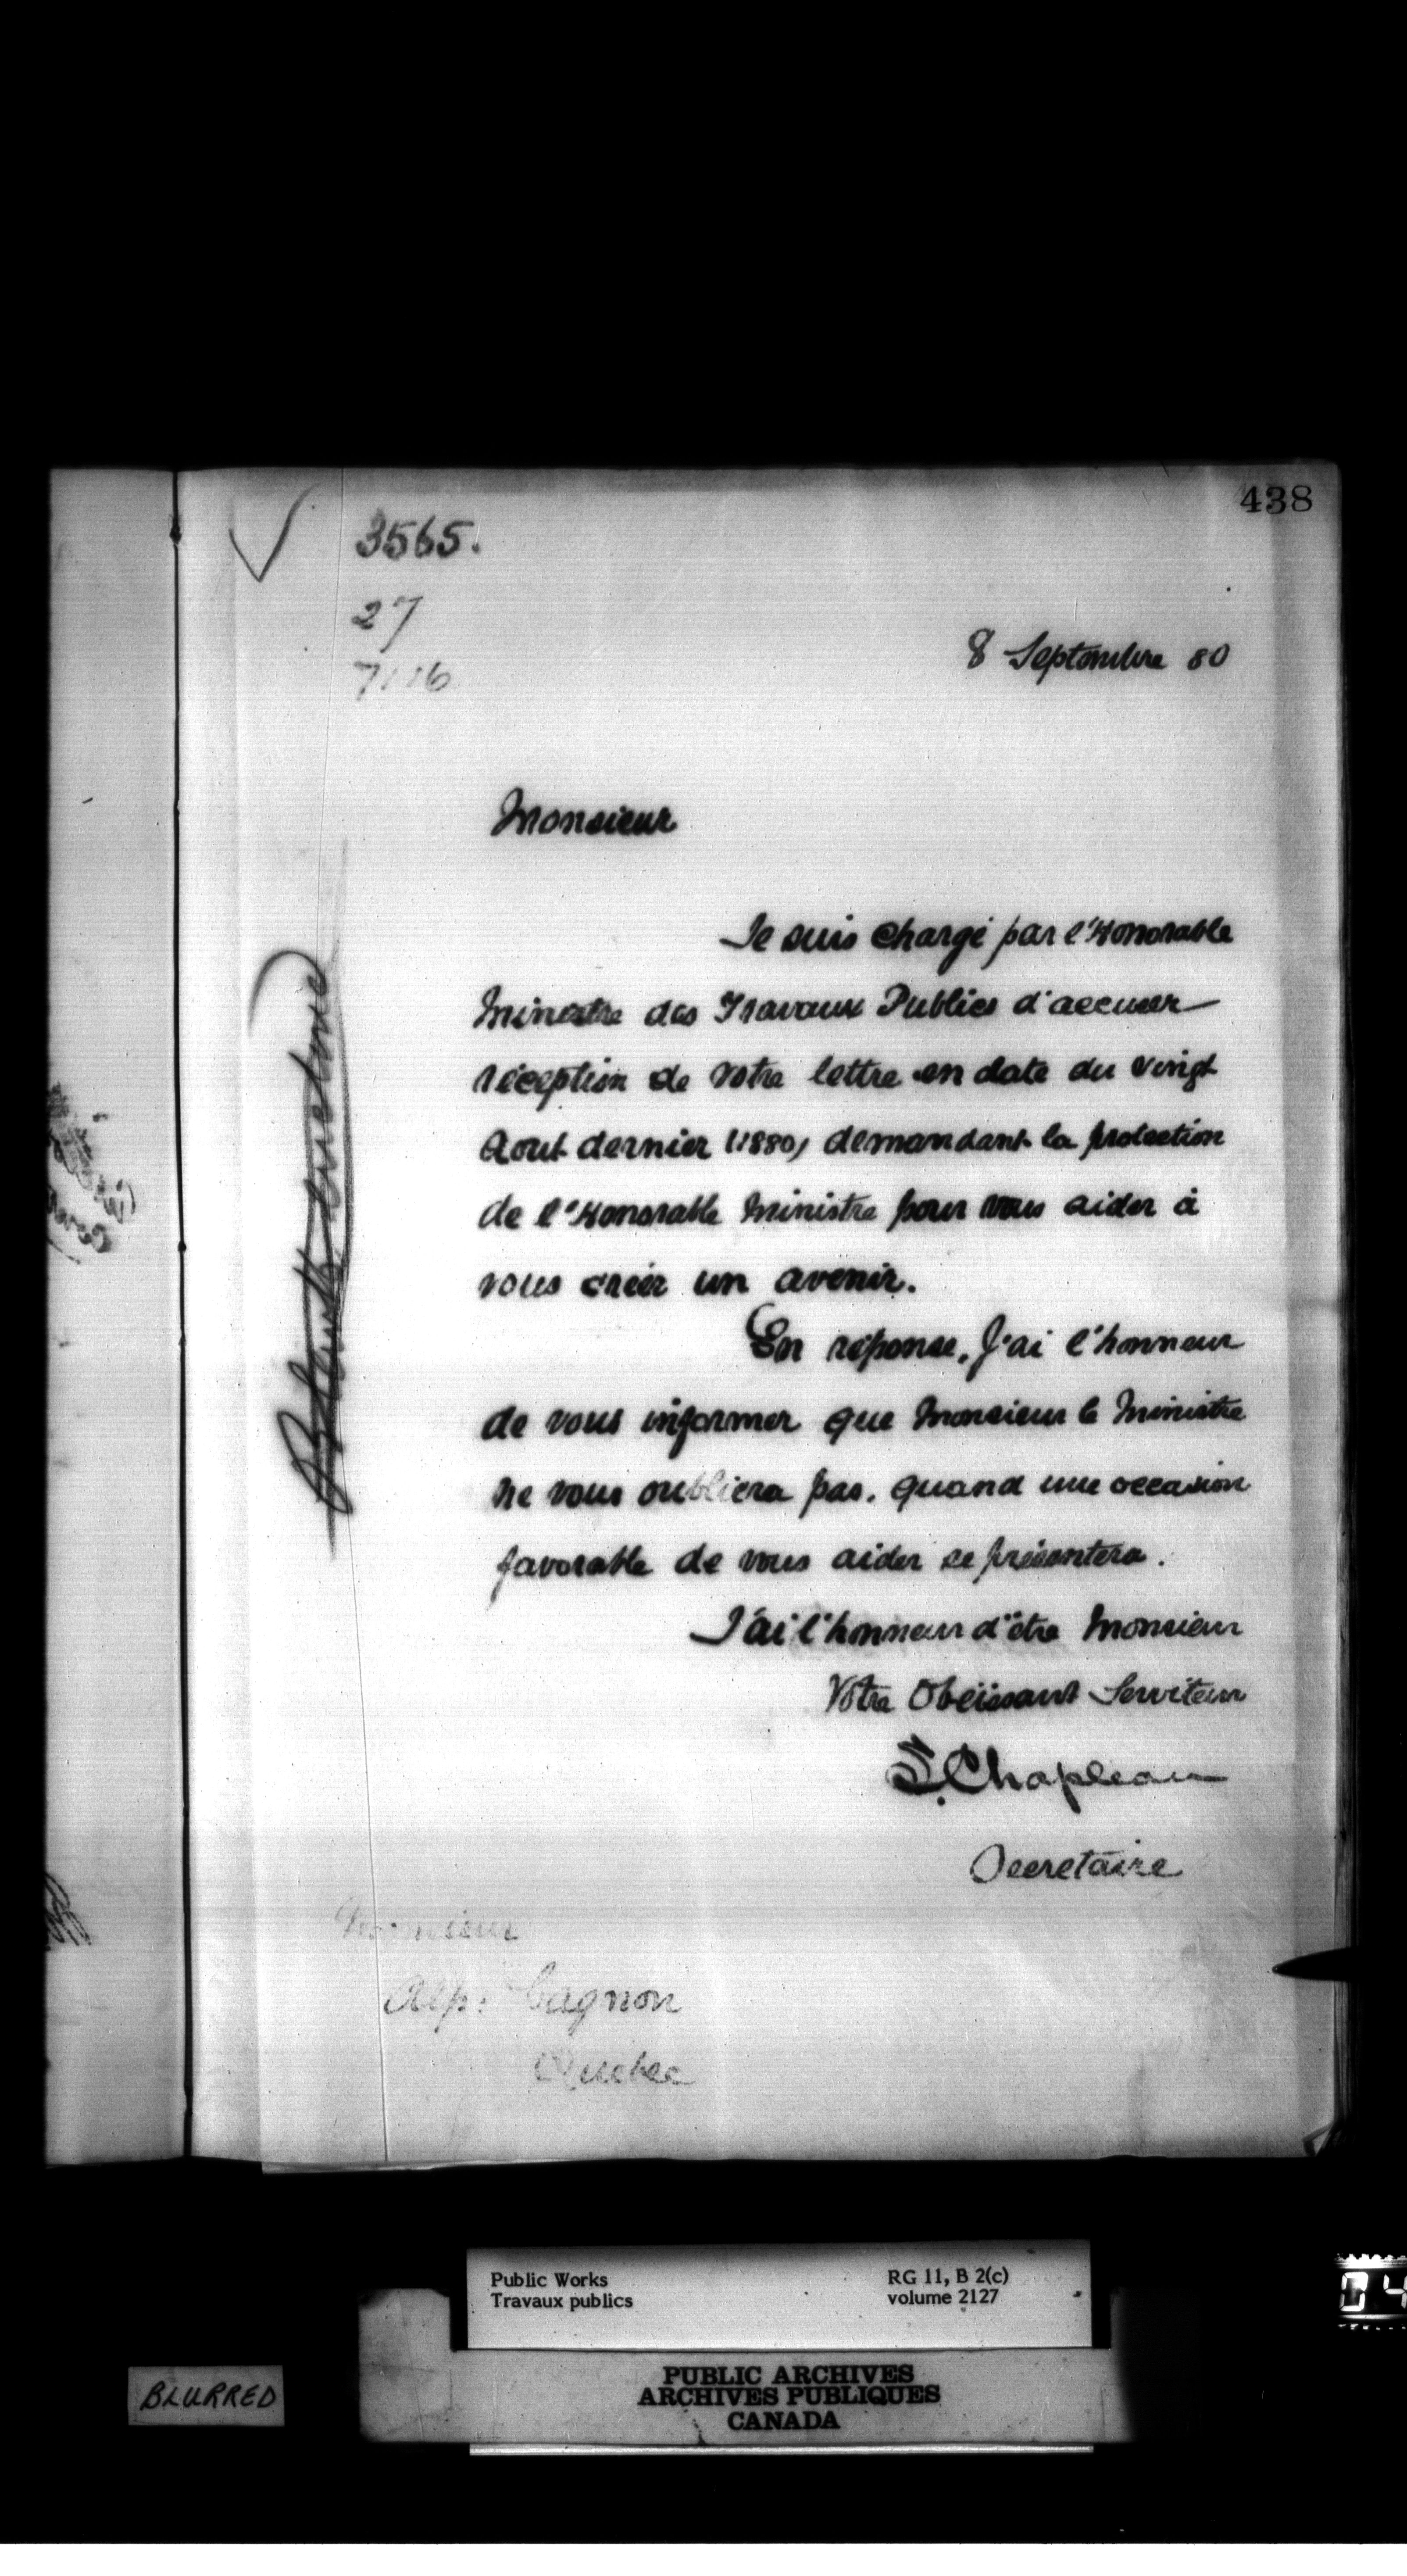 438
3565.
27
8 Septembre 80
Monsieur
Je suis chargé par l'Honorable
Ministre des Travaux Publics d'accuser
réception de votre lettre en date du vingt
Aout dernier (1880) demandant la protection
de l'Honorable Ministre pour vous aider à
vous créer un avenir.
En réponse, J'ai l'honneur
de vous informer que Monsieur le Ministre
ne vous oubliera pas, quand une occasion
favorable de vous aider se présentera.
J'ai l'honneur d'être Monsieur
Votre Obéissant Serviteur
S. Chapleau
Secretaire
Monsieur
Alp: Gagnon
Quebec
Public Works
Travaux publics
RG 11, B 2(c)
volume 2127
BLURRED
PUBLIC ARCHIVES
ARCHIVES PUBLIQUES
CANADA
04